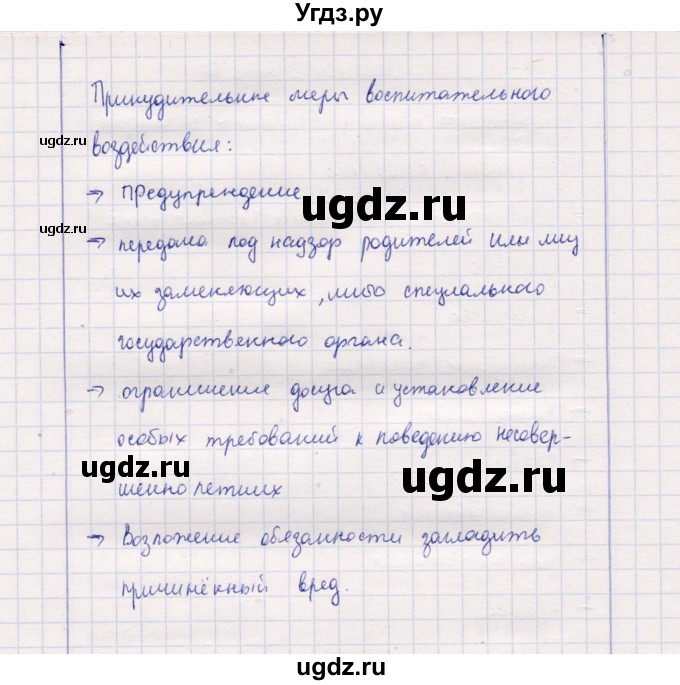 Угдз.ру
Принудительные меры воспитательного
ugdz.ru
воздействия:
→ Предупреждение
ugdz.ru
ugdz.ru
→ передача под надзор родителей или лиц
их заменяющих, либо специального
государственного органа.
→ ограничение досуга и установление
особых требований к поведению несовер-
ugdz.ru
ugdz.ru
шеннолетних
→ Возложение обязанности загладить
причинённый вред.
ugdz.ru